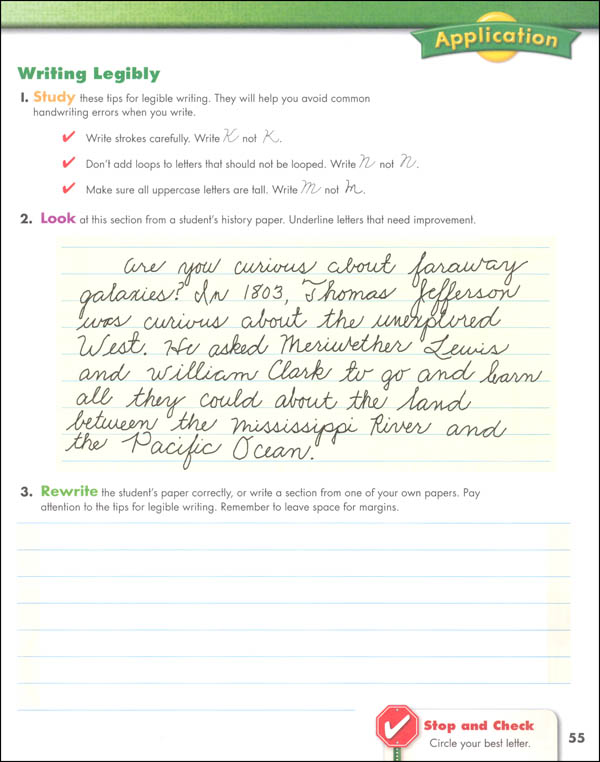 Application
Writing Legibly
1. Study these tips for legible writing. They will help you avoid common
handwriting errors when you write.
✔ Write strokes carefully. Write K not K.
✔ Don't add loops to letters that should not be looped. Write n not n.
✔ Make sure all uppercase letters are tall. Write M not m.
2. Look at this section from a student's history paper. Underline letters that need improvement.
are you curious about faraway
galaxies? In 1803, Thomas Jefferson
was curious about the unexplored
West. He asked Meriwether Lewis
and william Clark to go and learn
all they could about the land
between the mississippi River and
the Pacific Ocean.
3. Rewrite the student's paper correctly, or write a section from one of your own papers. Pay
attention to the tips for legible writing. Remember to leave space for margins.
Stop and Check
Circle your best letter.
55